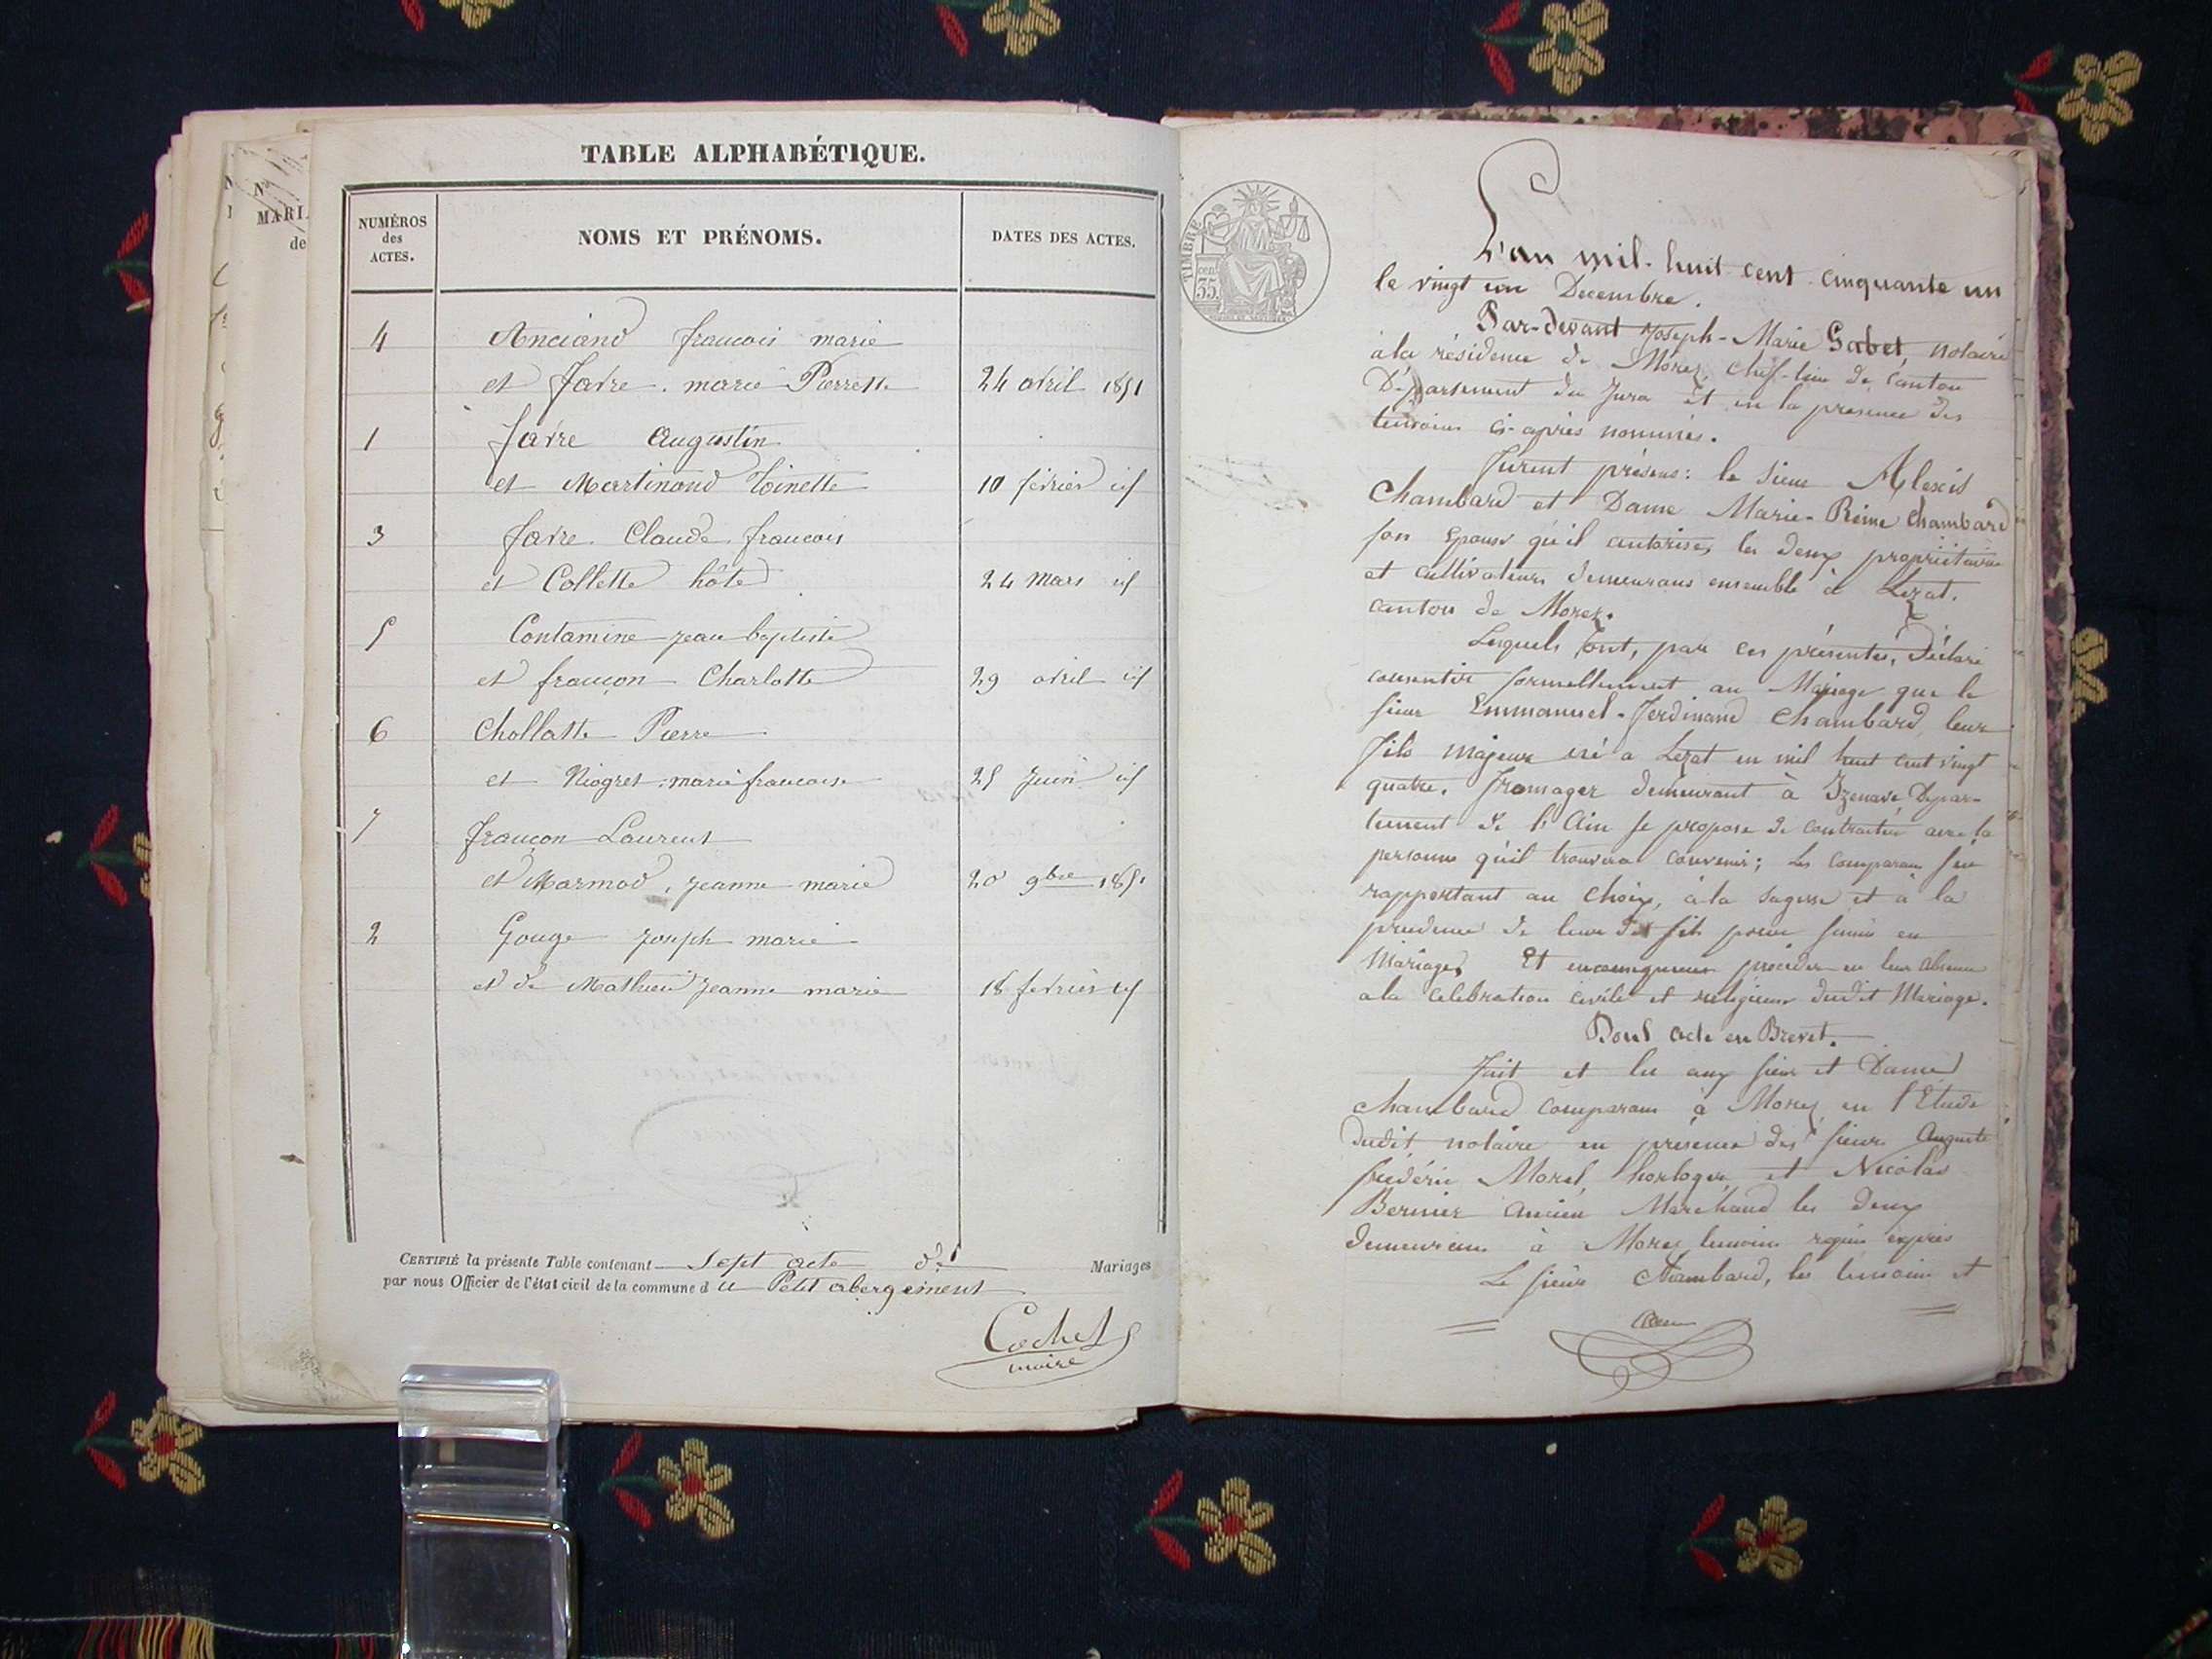 TABLE ALPHABÉTIQUE.
NUMÉROS
des
ACTES.
NOMS ET PRÉNOMS.
DATES DES ACTES.
4 Anciand francois marie
et favre marie Pierrette 24 avril 1851
1 favre Augustin
et Martinand toinette 10 février id
3 favre Claude francois
et Collette hôte 24 mars id
5 Contamine jean baptiste
et françon Charlotte 29 avril id
6 Chollatte Pierre
et Niogret marie francoise 25 Juin id
7 françon Laurent
et Marmod, Jeanne marie 20 9bre 1851
2 Gouge Joseph marie
et de Mathieu Jeanne marie 18 février id
CERTIFIÉ la présente Table contenant Sept acte de Mariages
par nous Officier de l'état civil de la commune d u Petit abergement
Cochet
maire
N°
MARI
de
TIMBRE
35 cent
L'an mil-huit cent cinquante un
le vingt un Decembre.
Par-devant Joseph-Marie Gabet, notaire
à la résidence de Morez, chef-lieu de Canton
Département du Jura et en la presence des
temoins ci-après nommés.
Furent présens: le sieur Alexis
Chambard et Dame Marie-Reine Chambard
son Epouse qu'il autorise, les deux propriétaires
et cultivateurs demeurans ensemble à Lezat,
canton de Morez.
Lesquels ont, par ces présentes, Déclaré
consentir formellement au Mariage que le
sieur Emmanuel-Ferdinand Chambard leur
fils majeur né a Lezat en mil huit cent vingt
quatre, fromager demeurant à Izenave Depar-
tement de l'Ain se propose de contracter avec la
personne qu'il trouvera convenir; les comparans s'en
rapportant au choix, à la sagesse et à la
prudence de leur dit fils pour s'unir en
Mariage. Et procéder en leur absence
a la celebration civile et religieuse dudit Mariage.
Dont acte en Brevet.
Fait et lu aux sieur et Dame
Chambard comparans à Morez en l'Etude
dudit notaire en présence des sieurs Auguste
frédéric Morel, horloger et Nicolas
Bernier ancien Marchand les deux
demeurans à Morez temoins requis exprès
Le sieur Chambard, les temoins et